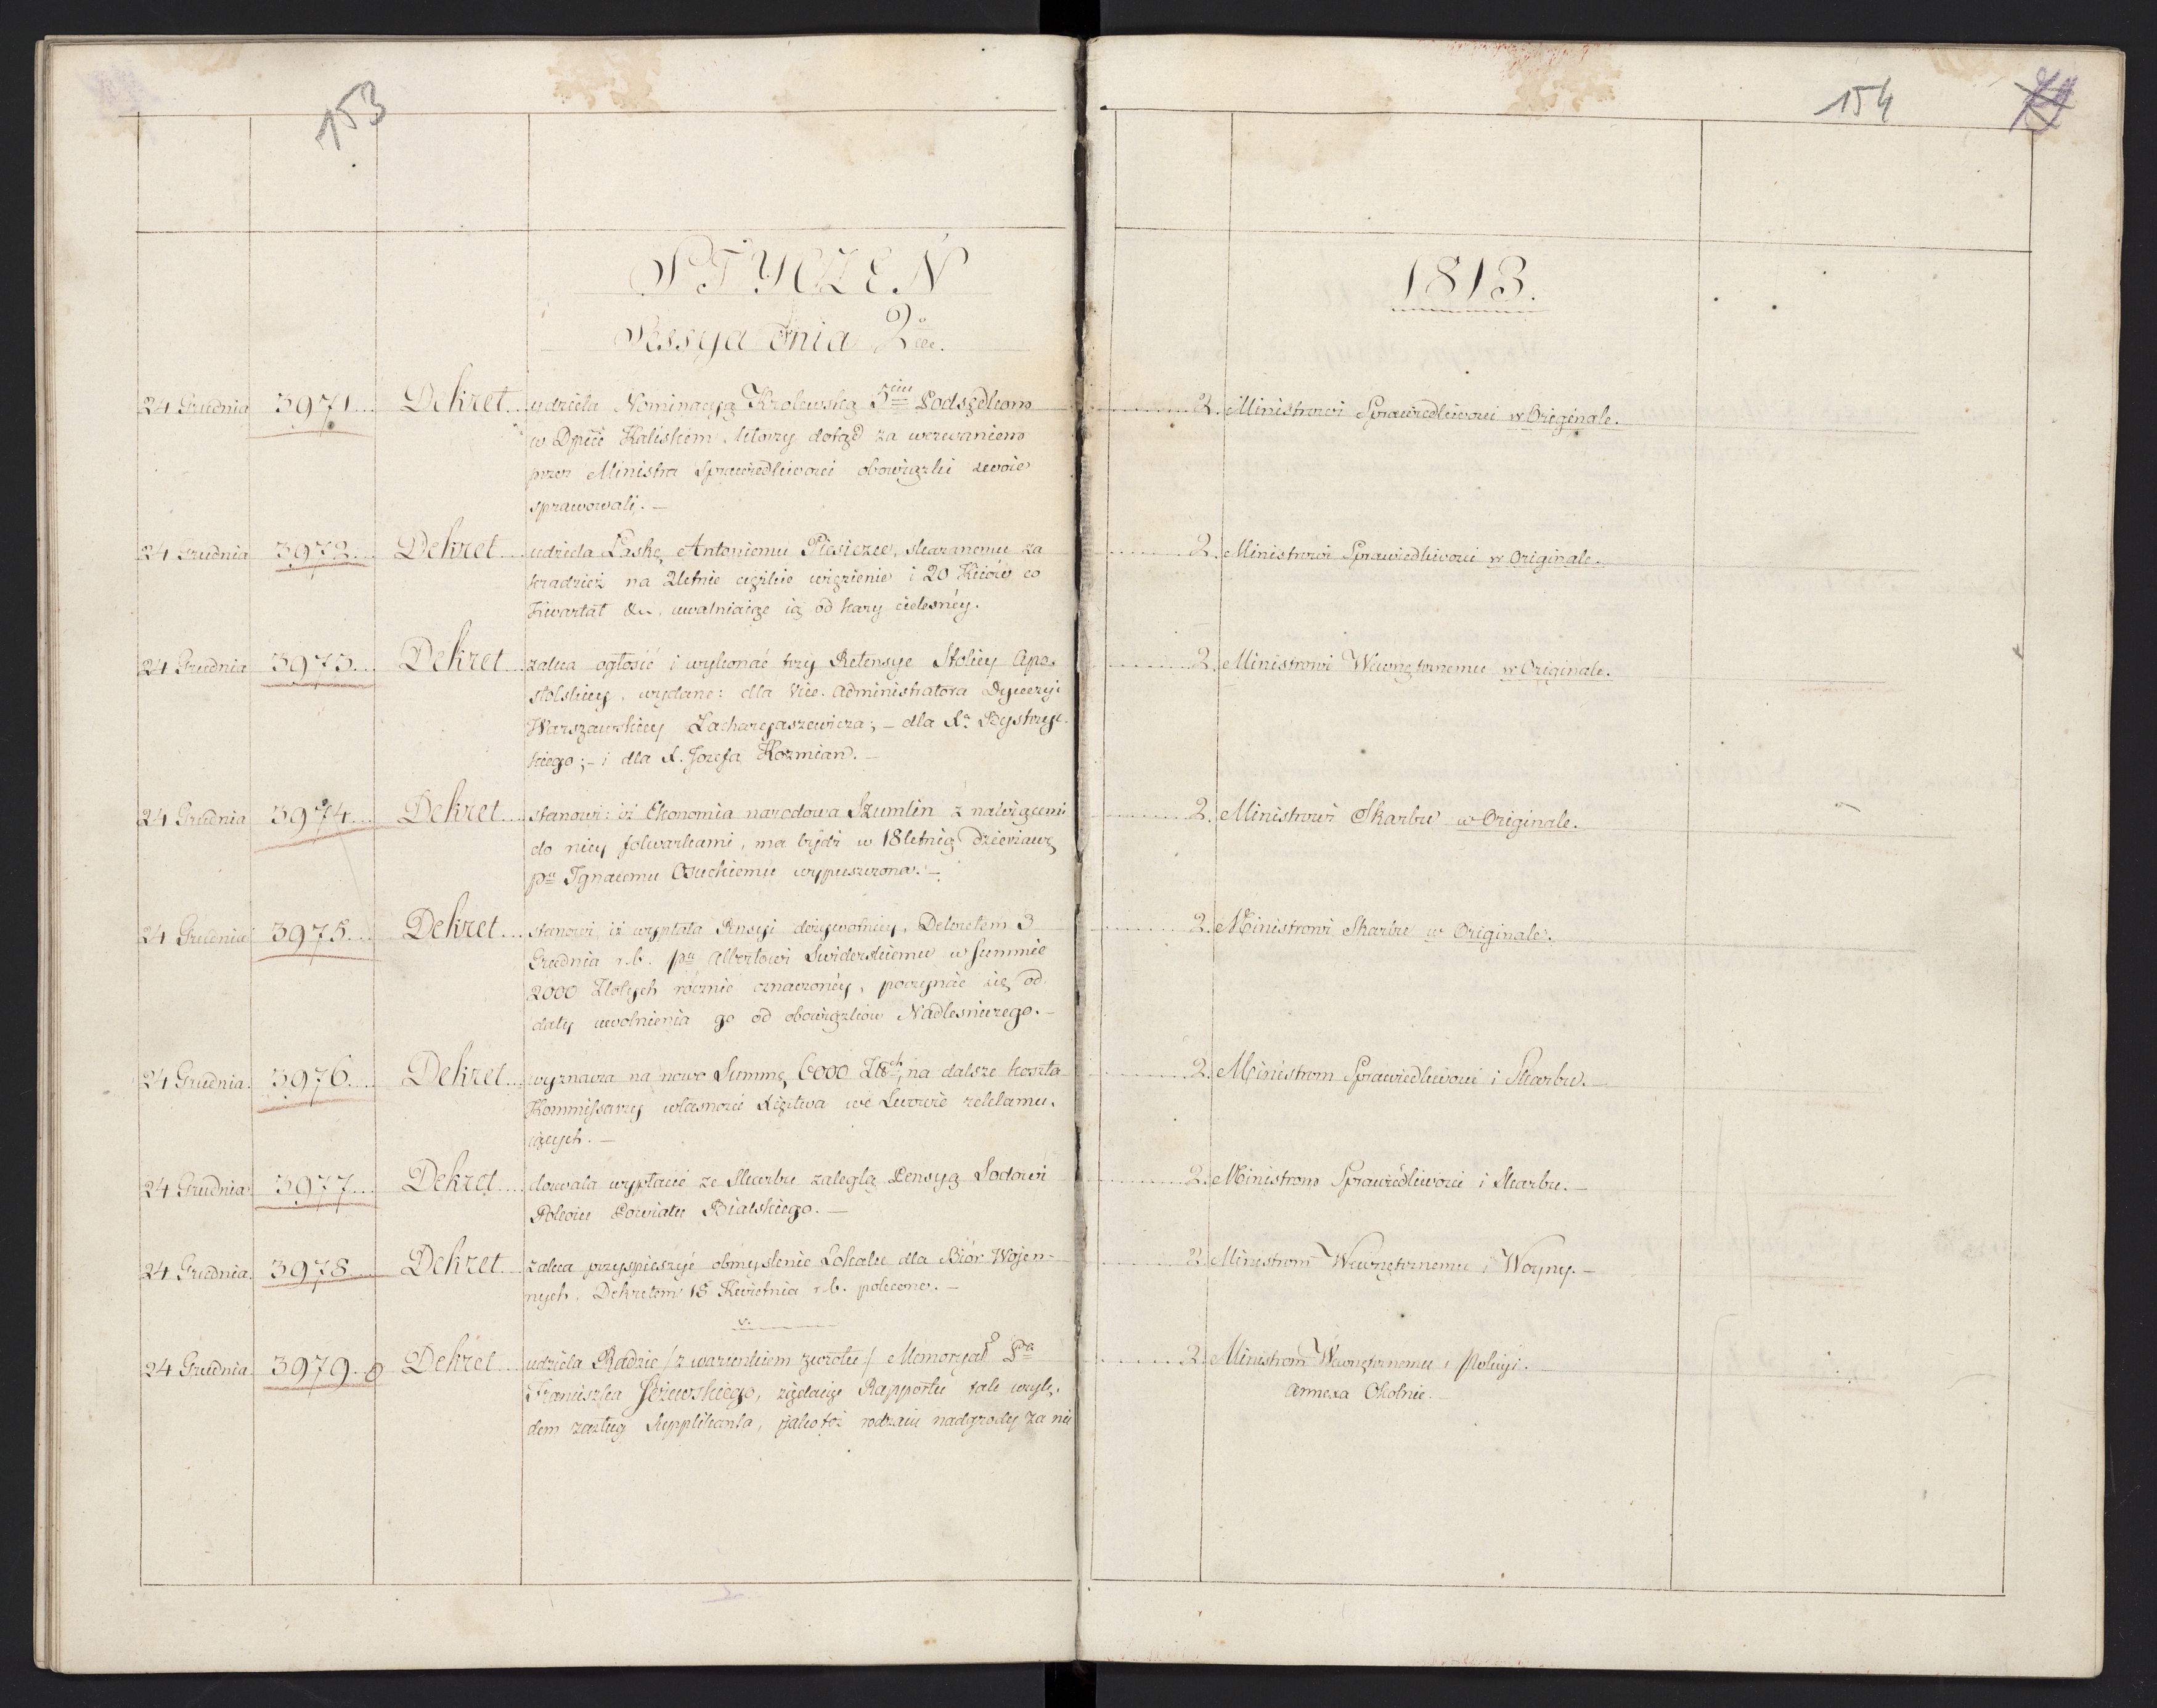 153
STYCZEŃ
Sessya dnia 2go
24 Grudnia 3971... Dekret... udziela Nominacyą Krolewską 5ciu Podsędkom
w Dpcie Kaliskiem, którzy dotąd za wezwaniem
przez Ministra Sprawiedliwości obowiązki swoie
sprawowali. —
24 Grudnia 3972... Dekret... udziela Łaskę Antoniemu skazanemu za
kradzież na 2letnie ciężkie więzienie i 20 Kiiów co
Kwartał &c. uwalniaiąc ią od kary cielesnéy.
24 Grudnia 3973... Dekret... zaleca ogłosić i wykonać trzy Retensye Stolicy Apo-
stolskiey, wydane: dla Vice-Administratora Dyecezyi
Warszawskiey Zacharyaszewicza; — dla X. Bystrzyc-
kiego; — i dla X. Jozefa Kozmian. —
24 Grudnia 3974... Dekret... stanowi: iż Ekonomia narodowa Szumlin z należącemi
do niey folwarkami, ma bydź w 18letnią Dzierżawę
pu Ignacemu Osuchiemu wypuszczona. —
24 Grudnia 3975... Dekret... stanowi iż wypłata Pensyi dożywotniey, Dekretem 3
Grudnia r.b. pu Albertowi Swiderskiemu w Summie
2000 Złotych rócznie oznaczonéy, poczynać się od
daty uwolnienia go od obowiązków Nadlesniczego. —
24 Grudnia 3976... Dekret... wyznacza na nowo Summę 6000 Złch na dalsze koszta
Kommissarzy własnoźci Xięztwa we Lwowie reklamu-
iących. —
24 Grudnia 3977... Dekret... dozwala wypłacić ze Skarbu zaległą Pensyą Sądowi
Pokoiu Powiatu Bialskiego. —
24 Grudnia 3978... Dekret... zaleca przyspieszyć obmyslenie Lokalu dla Biór Wojen-
nych, Dekretem 18 Kwietnia r.b. polecone. —
24 Grudnia 3979 Dekret... udziela Radzie /z warunkiem zwrotu/ Memoryał Pa
Franciszka żądaiąc Rapportu tak wzglę-
dem zasług Supplikanta, jako też rodzaiu nadgrody za nie
154
1813.
2. Ministrowi Sprawiedliwości w Originale.
2. Ministrowi Sprawiedliwości w Originale.
2. Ministrowi Wewnętrznemu w Originale.
2. Ministrowi Skarbu w Originale.
2. Ministrowi Skarbu w Originale.
2. Ministrom Sprawiedliwości i Skarbu. —
2. Ministrom Sprawiedliwości i Skarbu. —
2. Ministrom Wewnętrznemu i Woyny. —
2. Ministrom Wewnętrznemu i Policyi. —
Annexa Okolnie.